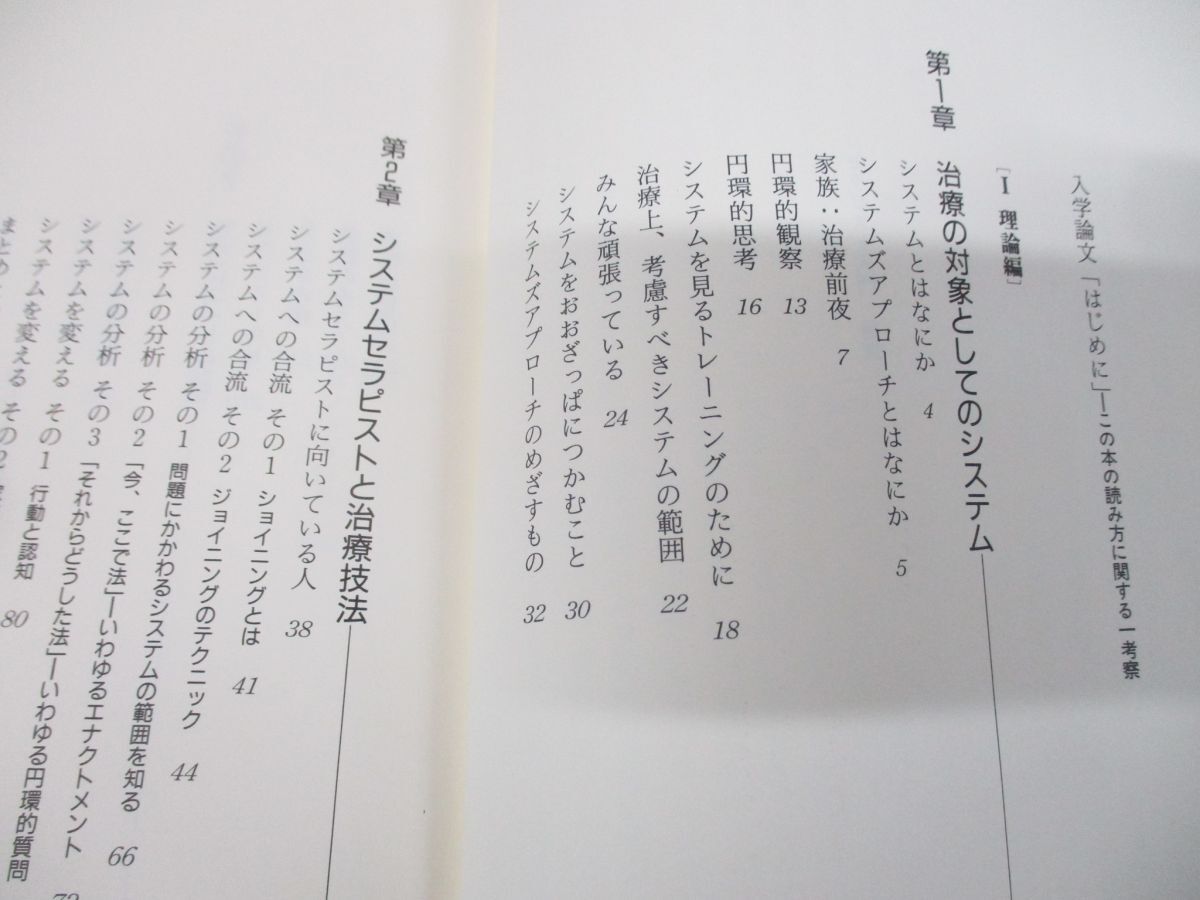 入学論文「はじめに」―この本の読み方に関する一考察
[Ⅰ 理論編]
第1章 治療の対象としてのシステム
システムとはなにか 4
システムズアプローチとはなにか 5
家族:治療前夜 7
円環的観察 13
円環的思考 16
システムを見るトレーニングのために 18
治療上、考慮すべきシステムの範囲 22
みんな頑張っている 24
システムをおおざっぱにつかむこと 30
システムズアプローチのめざすもの 32
第2章 システムセラピストと治療技法
システムセラピストに向いている人 38
システムへの合流 その1 ジョイニングとは 41
システムへの合流 その2 ジョイニングのテクニック 44
システムの分析 その1 問題にかかわるシステムの範囲を知る 66
システムの分析 その2 「今、ここで法」―いわゆるエナクトメント 72
システムの分析 その3 「それからどうした法」―いわゆる円環的質問
システムを変える その1 行動と認知 80
システムを変える その2
まとめ